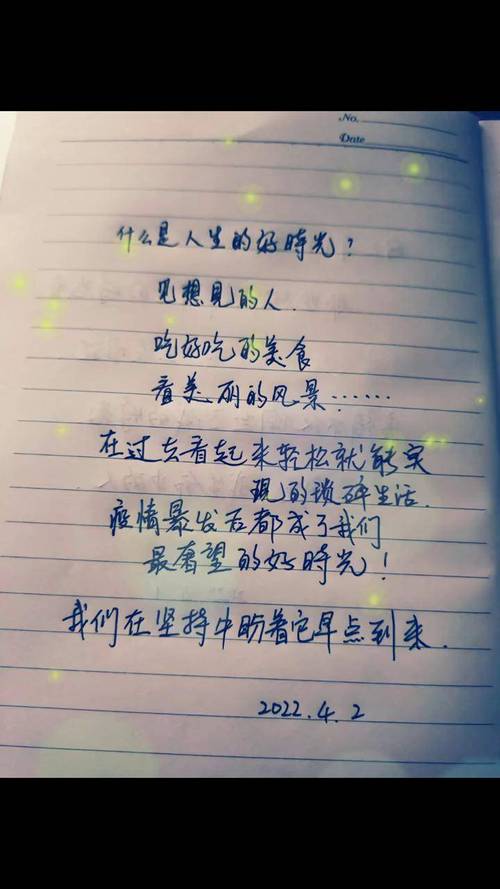 No.
Date
什么是人生的好時光？
见想见的人.
吃好吃的美食
看美丽的风景……
在过去看起来轻松就能实
现的琐碎生活.
疫情暴发后都成了我们
最奢望的好時光！
我们在坚持中盼着它早点到来.
2022.4.2